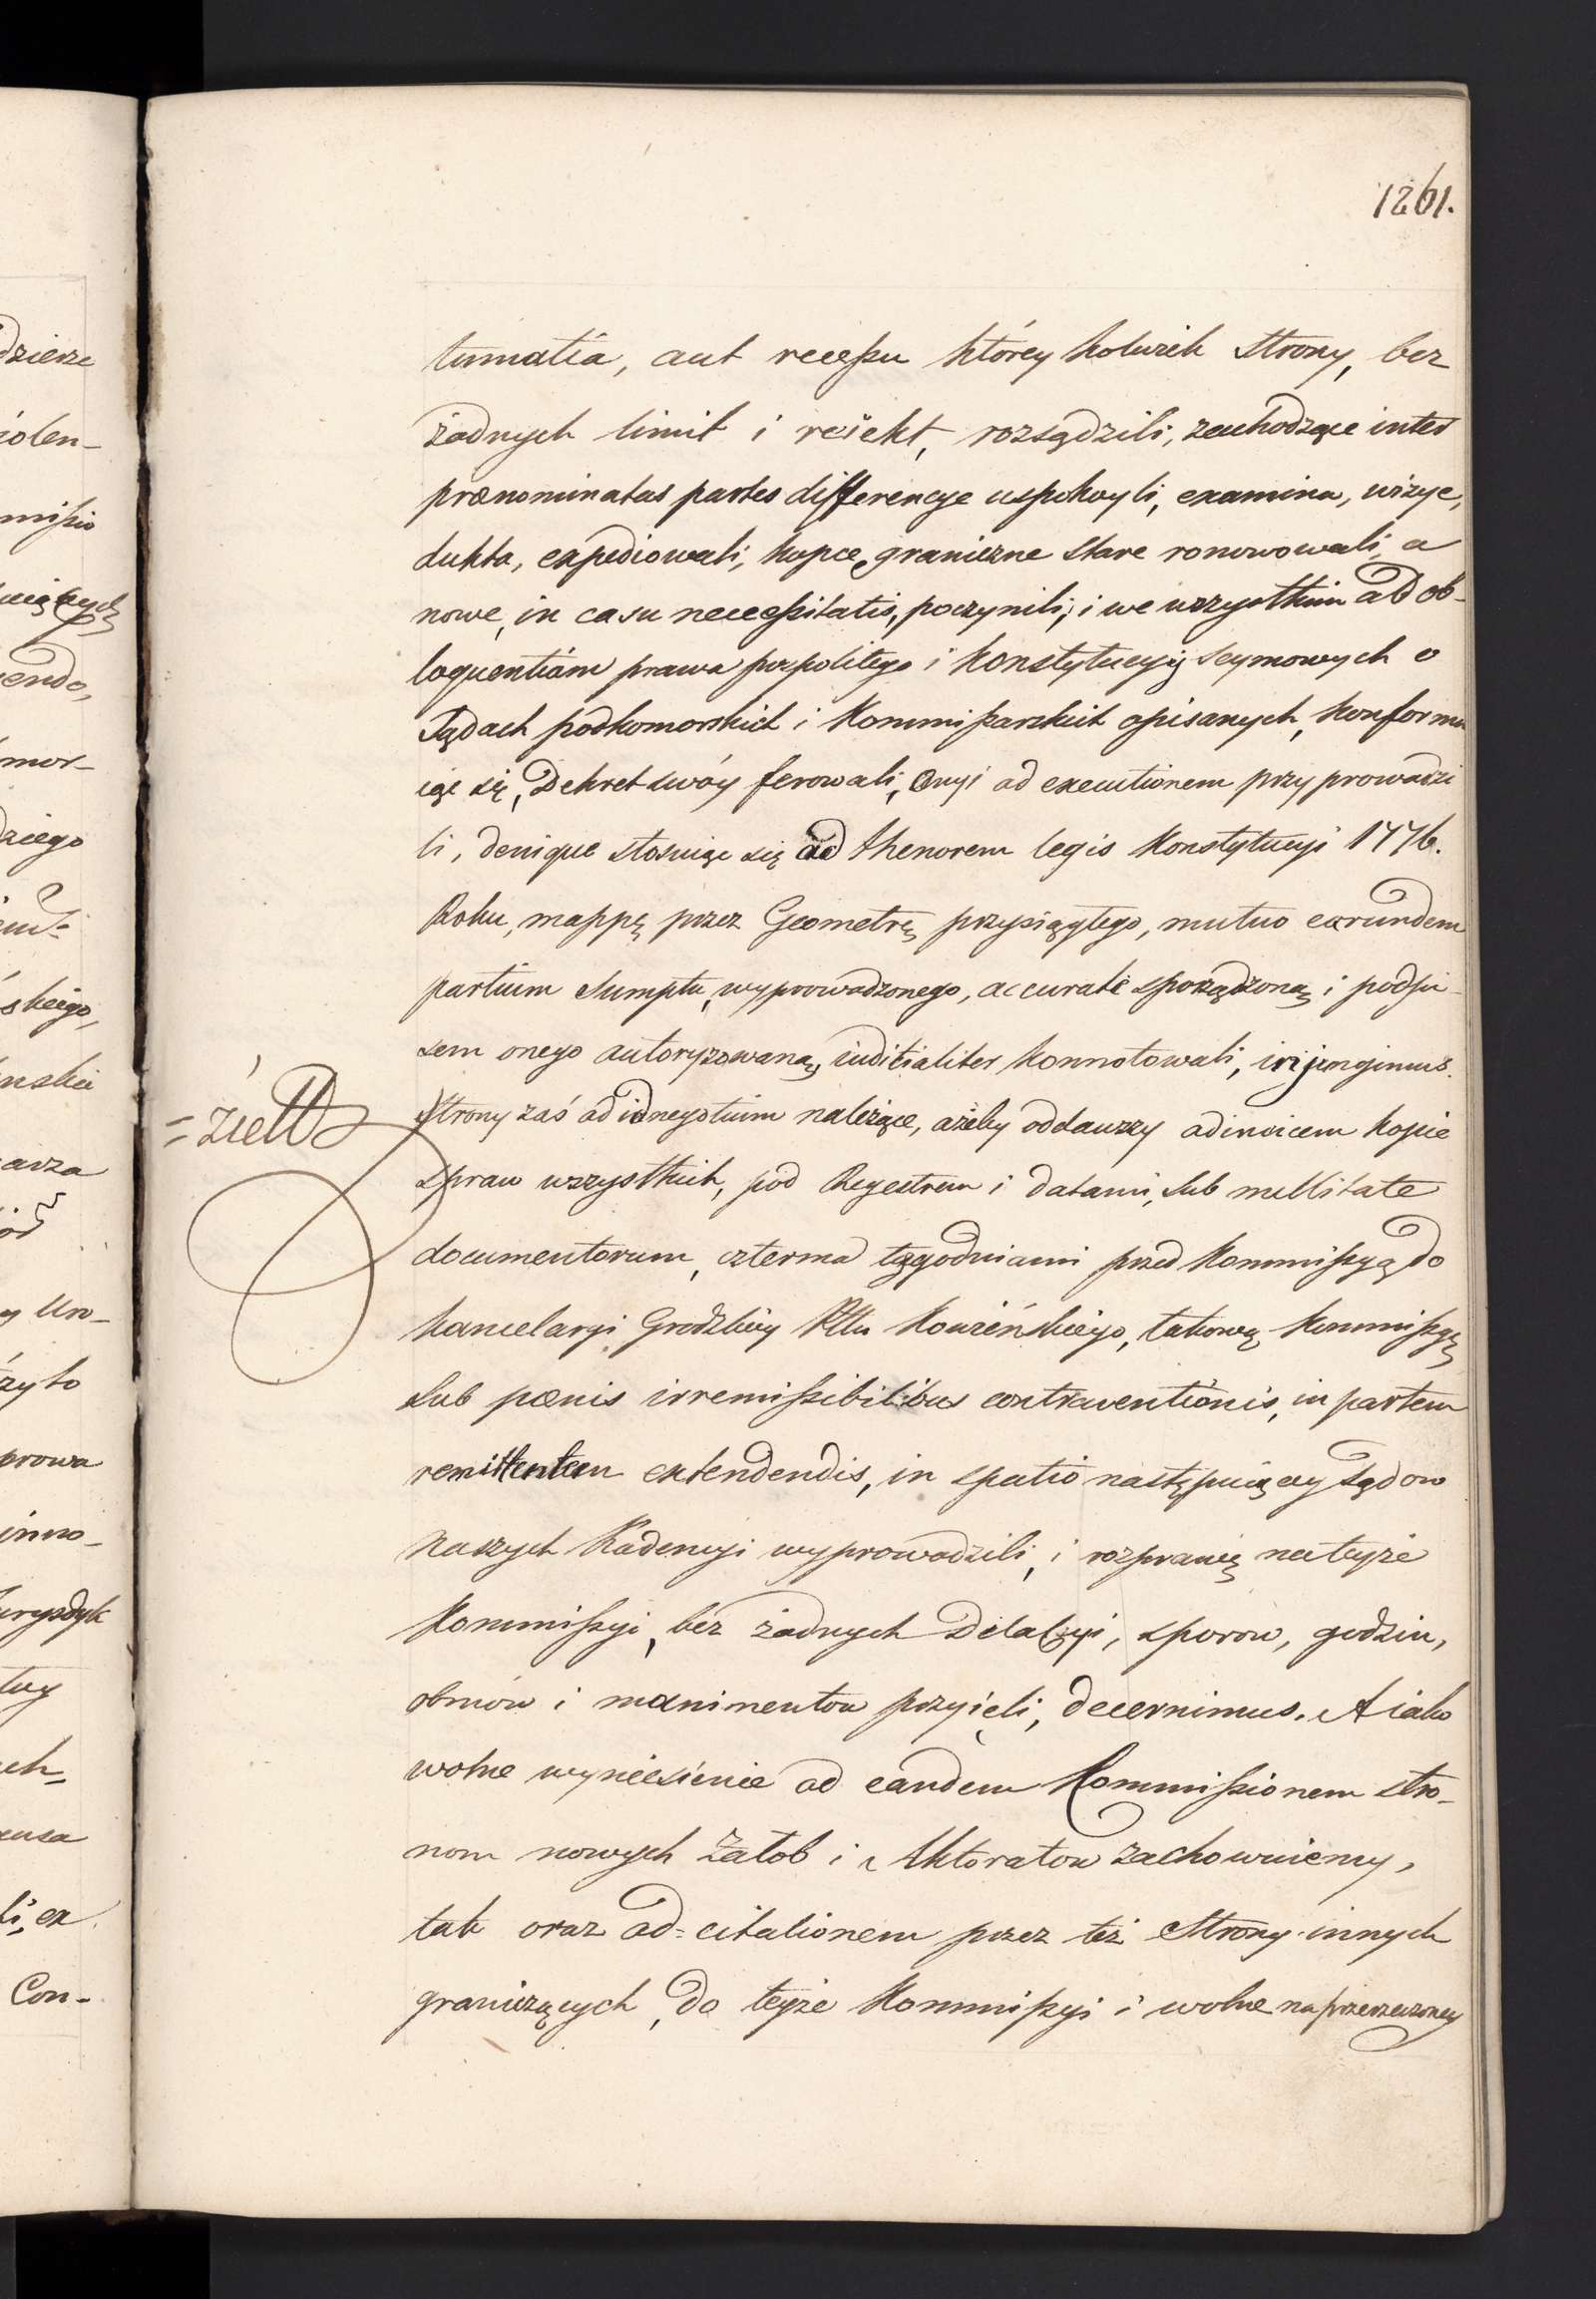 1261.
tumatia, aut recessu którey kolwiek Strony, bez
żadnych limit i reiekt, rozsądzili, zachodzące inter
prænominatas partes differencye uspokoyli, examina, wizye,
dukta, expediowali, kopce graniczne stare ronowowali, a
nowe, in casu necessitatis, poczynili, i we wszystkim ad ob-
loquentiam prawa pospolitego i Konstytucyij Seymowych o
Sądach podkomorskich i Kommissarskich opisanych, konformu
iąc się, Dekret swóy ferowali, Onyi ad executionem przyprowadzi
li, denique stosuiąc się ad thenorem legis Konstytucyi 1776.
Roku, mappę przez Geometrę przysięgłego, mutuo earundem
partium Sumptu, wyprowadzonego, accurate sporządzoną, i podpi-
sem onego autoryzowaną, iuditialiter konnotowali, injungimus.
Strony zaś ad id negotium należące, ażeby oddawszy adinvicem kopie
spraw wszystkich, pod Regestrem i datami, Sub nullitate
documentorum, czterma tygodniami przed Kommissyą do
kancelaryi Grodzkiey Pttu Kowieńskiego, takową Kommissyę
Sub pœnis irremissibilibus contraventionis, in partem
remittentem extendendis, in spatio następuiącey Sądow
naszych Kadencyi wyprowadzili, i rozprawę na teyże
Kommissyi, bez żadnych Dilacyi, sporow, godzin,
obmów i munimentow przyięli, decernimus. A iako
wolne wyniesienie ad eandem Kommissionem stro-
nom nowych Załob i Aktoratow zachowuiemy,
tak oraz ad=citationem przez też Strony innych
graniczących, do teyże Kommissyi i wolne na przerzeczoney